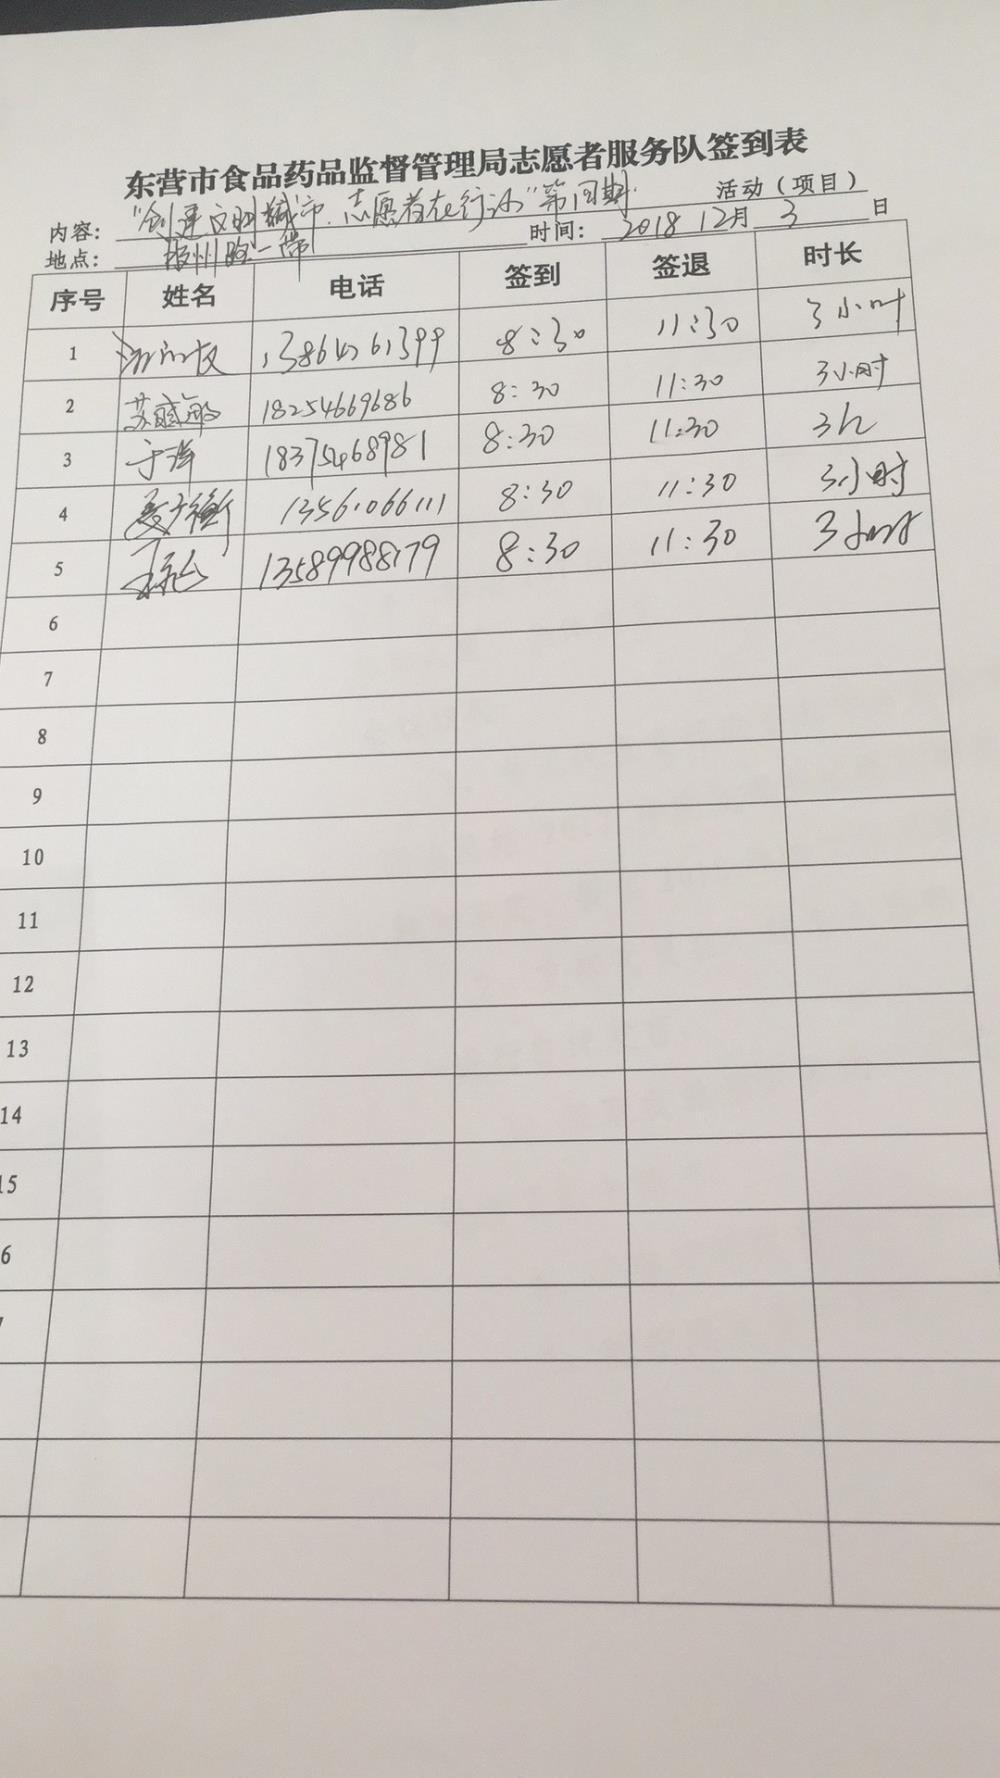 东营市食品药品监督管理局志愿者服务队签到表
内容: "创建文明城市.志愿者在行动"第四期. 活动（项目）
地点: 一带 时间: 2018 12月 3 日
序号 姓名 电话 签到 签退 时长
1 8:30 11:30 3小时
2 苏盛敏 18254669686 8:30 11:30 3小时
3 于洋 18375468981 8:30 11:30 3h
4 13561066111 8:30 11:30 3小时
5 13589988179 8:30 11:30 3小时
6
7
8
9
10
11
12
13
14
15
6
7